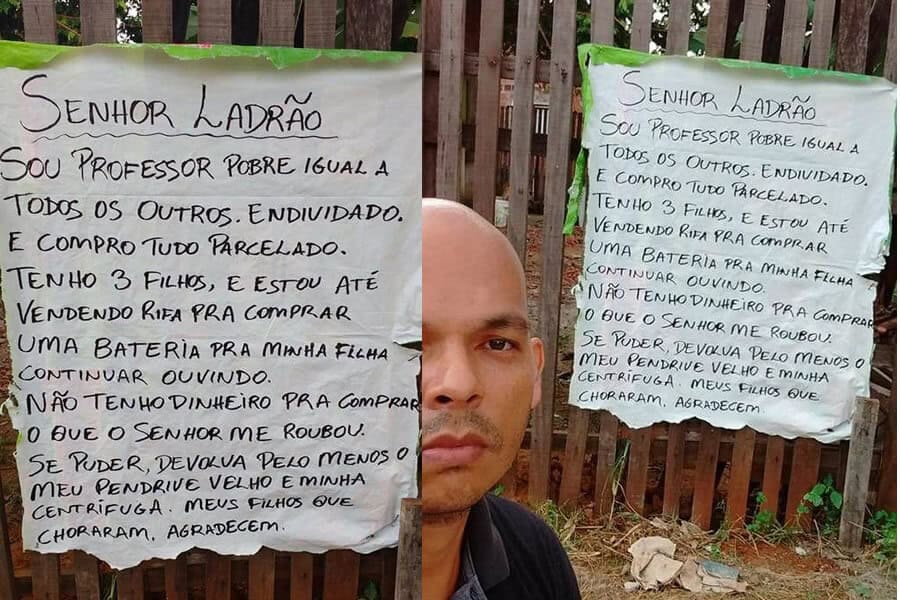 SENHOR LADRÃO
SOU PROFESSOR POBRE IGUAL A
TODOS OS OUTROS. ENDIVIDADO.
E COMPRO TUDO PARCELADO.
TENHO 3 FILHOS, E ESTOU ATÉ
VENDENDO RIFA PRA COMPRAR
UMA BATERIA PRA MINHA FILHA
CONTINUAR OUVINDO.
NÃO TENHO DINHEIRO PRA COMPRAR
O QUE O SENHOR ME ROUBOU.
SE PUDER, DEVOLVA PELO MENOS O
MEU PENDRIVE VELHO E MINHA
CENTRÍFUGA. MEUS FILHOS QUE
CHORARAM, AGRADECEM.
SENHOR LADRÃO
SOU PROFESSOR POBRE IGUAL A
TODOS OS OUTROS. ENDIVIDADO.
E COMPRO TUDO PARCELADO.
TENHO 3 FILHOS, E ESTOU ATÉ
VENDENDO RIFA PRA COMPRAR
UMA BATERIA PRA MINHA FILHA
CONTINUAR OUVINDO.
NÃO TENHO DINHEIRO PRA COMPRAR
O QUE O SENHOR ME ROUBOU.
SE PUDER, DEVOLVA PELO MENOS O
MEU PENDRIVE VELHO E MINHA
CENTRÍFUGA. MEUS FILHOS QUE
CHORARAM, AGRADECEM.